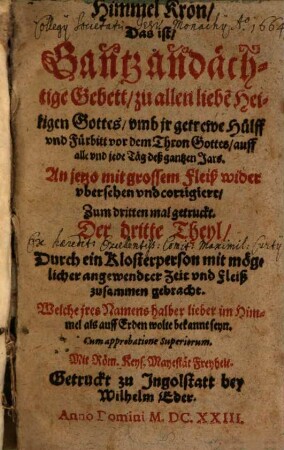 Himmel Kron/
Collegij Societatis Jesu Monachij Aº 1664
Das ist/
Gantz andäch-
tige Gebett/ zu allen liebē Hei-
ligen Gottes/ vmb jr getrewe Hülff
vnd Fürbitt vor dem Thron Gottes/ auff
alle vnd jede Täg deß gantzen Jars.
An jetzo mit grossem Fleiß wider
vbersehen vnd corrigiert/
Zum dritten mal getruckt.
Der dritte Theyl/
Ex haeredit: Comit: Maximil: Curtij
Durch ein Klosterperson mit mög-
licher angewendter Zeit vnd Fleiß
zusammen gebracht.
Welche jres Namens halber lieber im Him-
mel als auff Erden wolte bekannt seyn.
Cum approbatione Superiorum.
Mit Röm. Keys. Mayestät Freyheit.
Getruckt zu Ingolstatt bey
Wilhelm Eder.
Anno Domini M. DC. XXIII.